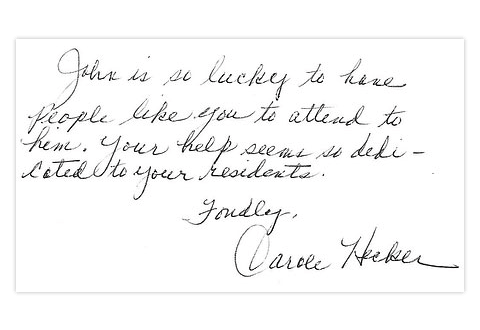 John is so lucky to have
people like you to attend to
him. Your help seems so dedi-
cated to your residents.
Fondly,
Carole Hecker